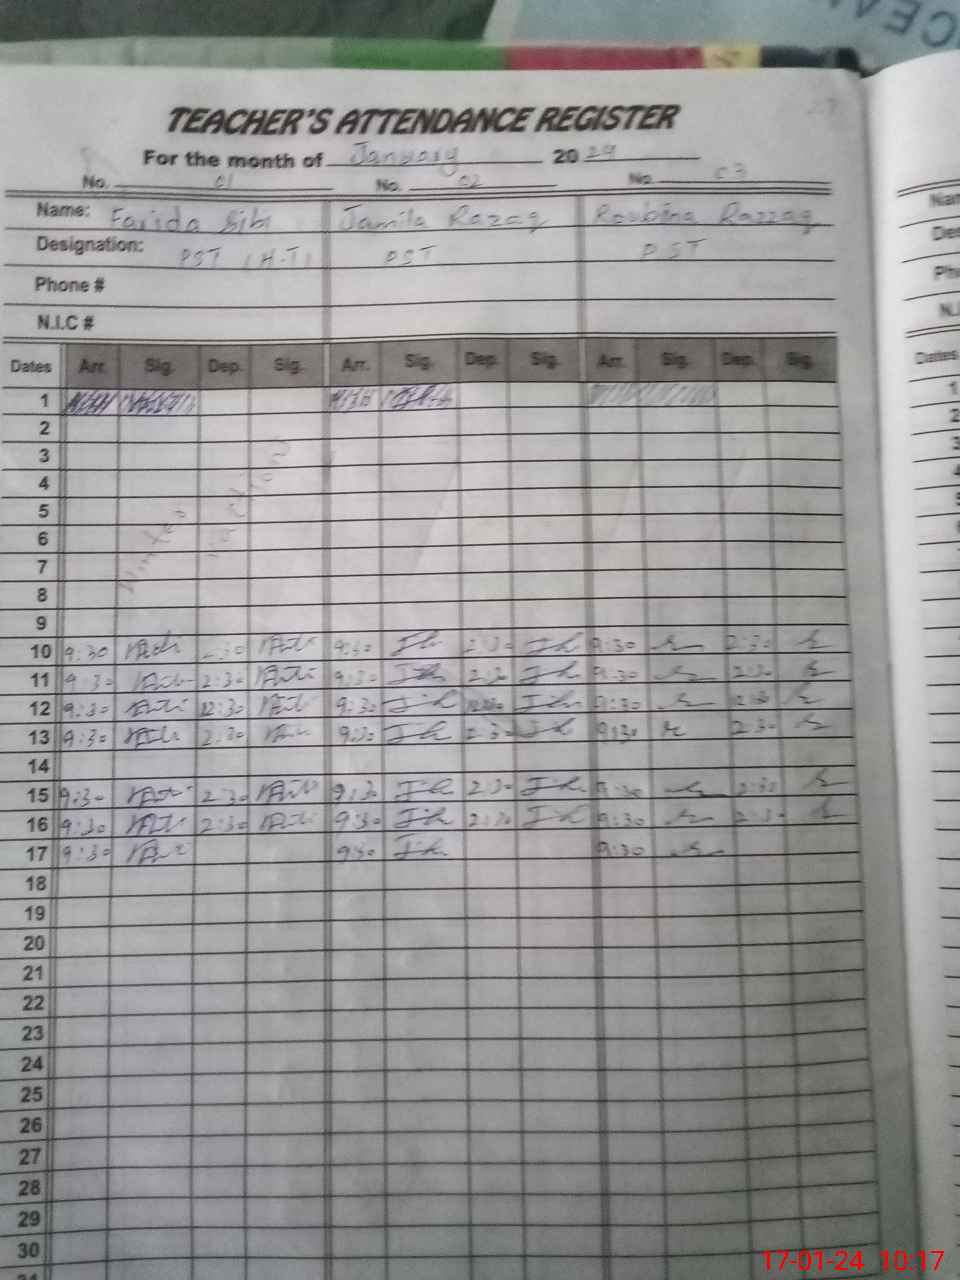 TEACHER'S ATTENDANCE REGISTER
For the month of January 2024
No. 01 No. 02 No. 03
Name: Farida Bibi Jamila Razaq Roubina Razzaq
Designation: PST (H.T) PST PST
Phone #
N.I.C #
Dates Arr. Sig. Dep. Sig. Arr. Sig. Dep. Sig. Arr. Sig. Dep. Sig.
1
2
3
4
5
6
7
8
9
Winter
10 9:30 2:30 9:30 2:30 9:30 2:30
11 9:30 2:30 9:30 2:30 9:30 2:30
12 9:30 12:30 9:30 9:30 12:30
13 9:30 2:30 9:30 2:30 9:30 2:30
14
15 9:30 2:30 9:30 2:30 9:30 2:30
16 9:30 2:30 9:30 2:30 9:30 2:30
17 9:30 9:30 9:30
18
19
20
21
22
23
24
25
26
27
28
29
30
Dates
1
2
3
17-01-24 10:17